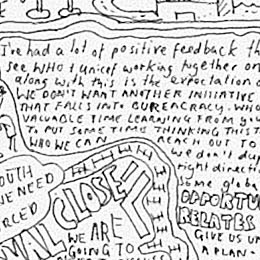 I've had a lot of positive feedback th
see WHO & Unicef working together on
along with this is the expectation o
WE DON'T WANT ANOTHER INITIATIVE
THAT FALLS INTO BUREACRACY. WHO
VALUABLE TIME LEARNING FROM YOU
TO PUT SOME TIME THINKING THIS T
WHO WE CAN REACH OUT TO
we don't dup
right directi
Some globa
OPPORTU
RELATES
GIVE US UP
A PLAN -
OUTH
WE NEED
RCED
CLOSELY
WE ARE
GOING TO